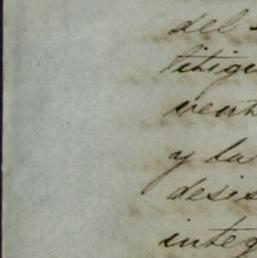 del
litigi
vent
y la
desis
integ